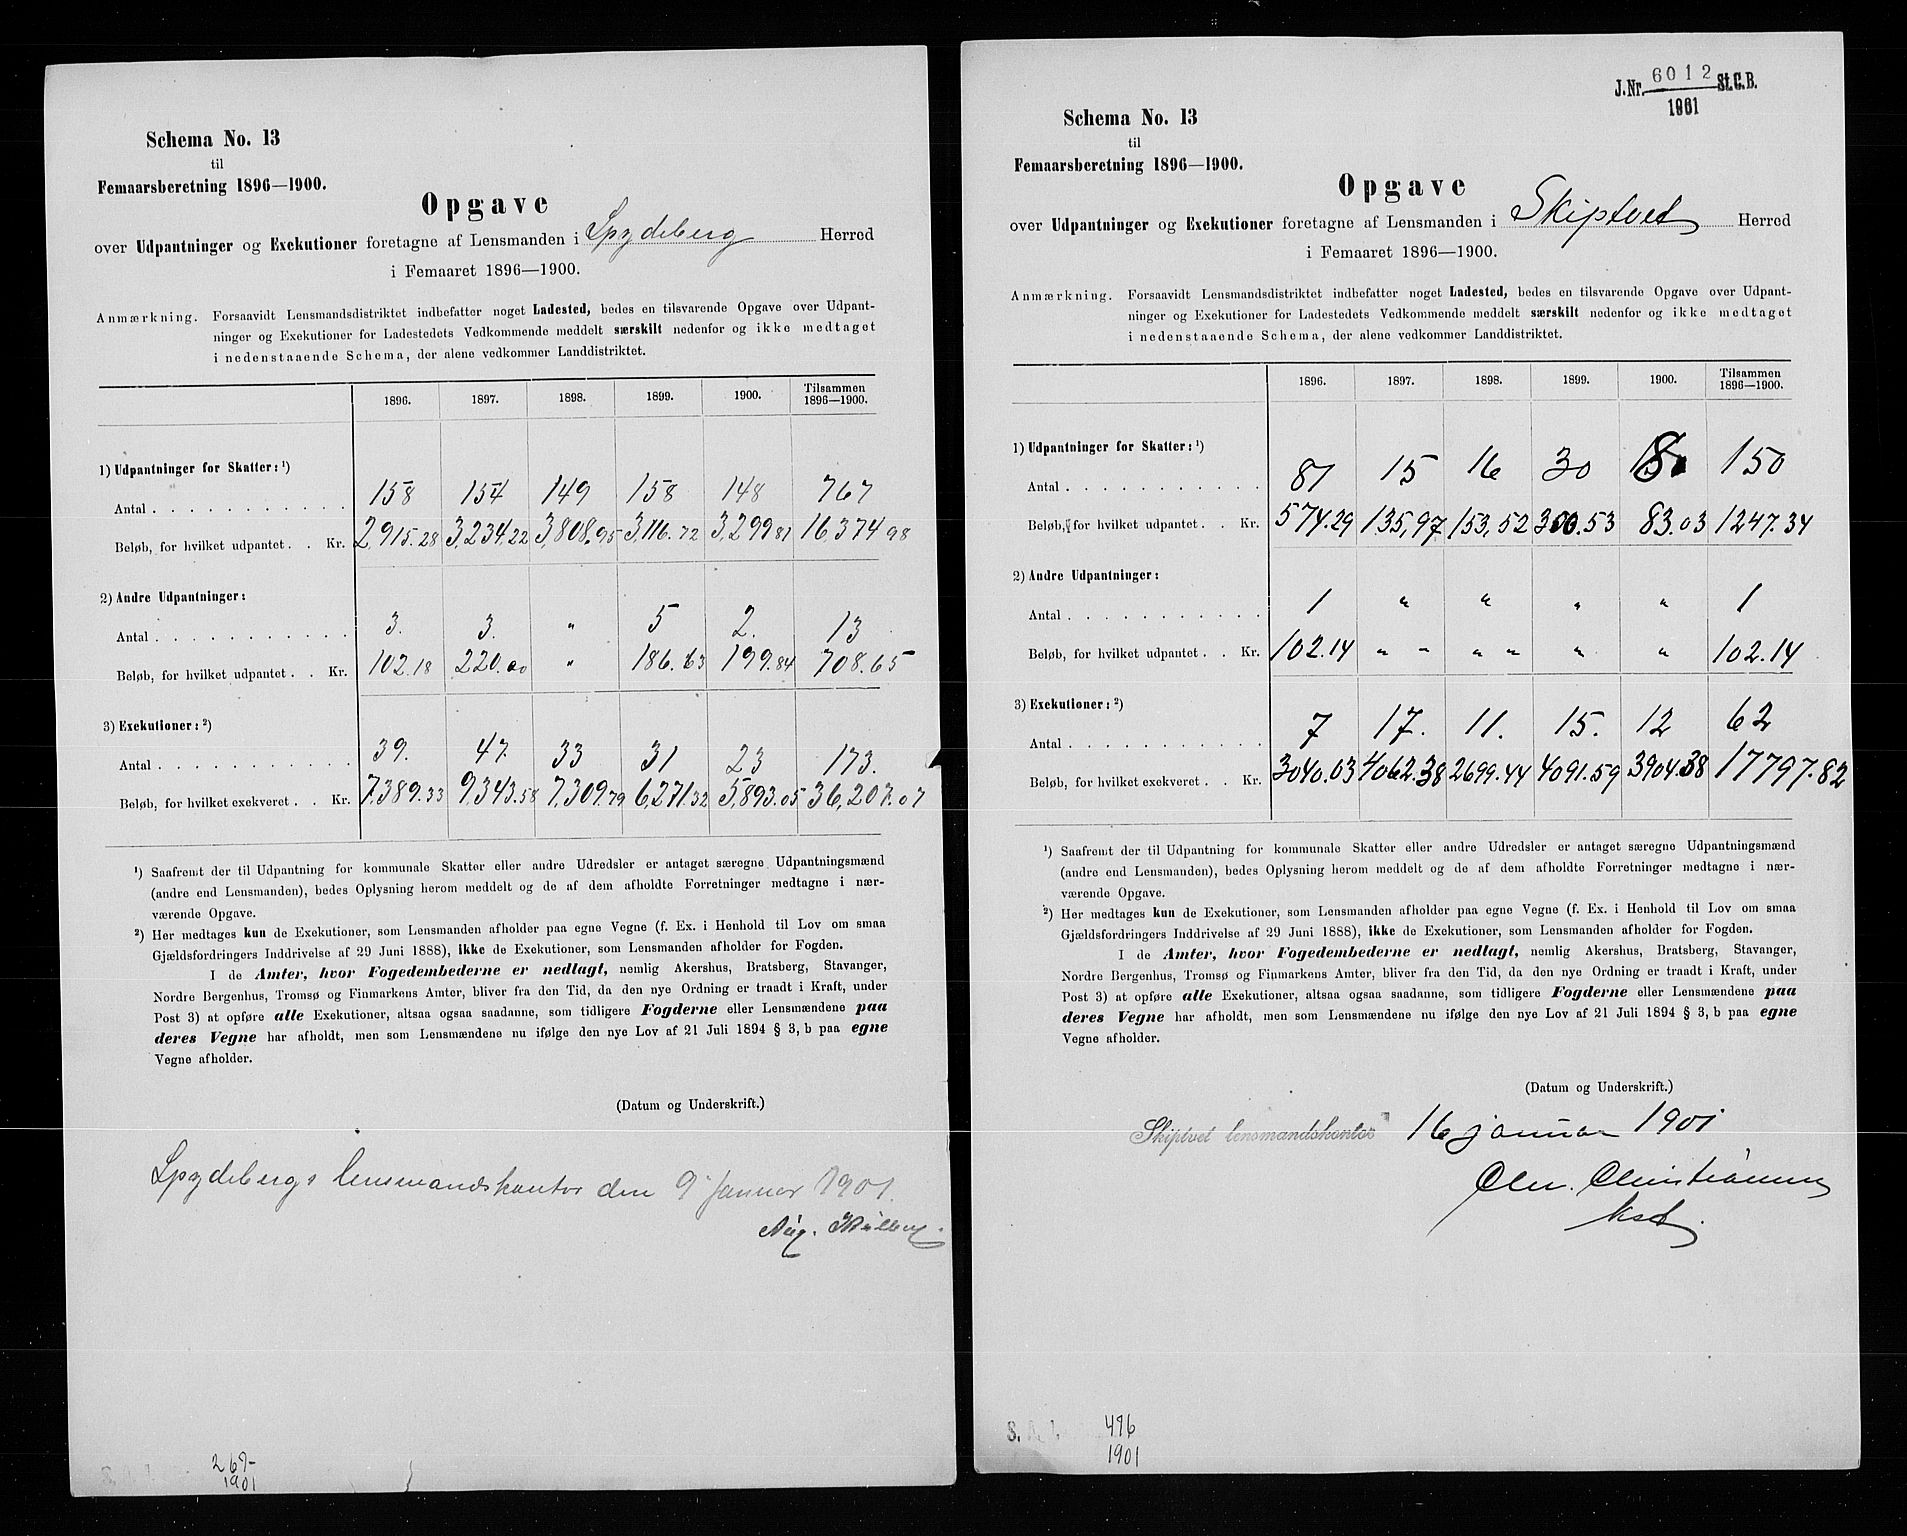 Schema No. 13
til
Femaarsberetning 1896—1900.
Opgave
over Udpantninger og Exekutioner foretagne af Lensmanden i Spydeberg Herred
i Femaaret 1896—1900.
Anmærkning. Forsaavidt Lensmandsdistriktet indbefatter noget Ladested, bedes en tilsvarende Opgave over Udpant-
ninger og Exekutioner for Ladestedets Vedkommende meddelt særskilt nedenfor og ikke medtaget
i nedenstaaende Schema, der alene vedkommer Landdistriktet.
1896. 1897. 1898. 1899. 1900. Tilsammen
1896—1900.
1) Udpantninger for Skatter: ¹)
Antal . . . . . . . . . . . 158 154 149 158 148 767
Beløb, for hvilket udpantet . . Kr. 2,915.28 3,234,22 3,808.95 3,116.72 3,299 81 16,374 98
2) Andre Udpantninger:
Antal . . . . . . . . . . . 3. 3. " 5 2. 13
Beløb, for hvilket udpantet . . Kr. 102.18 220.00 " 186.63 199.84 708.65
3) Exekutioner: ²)
Antal . . . . . . . . . . . 39. 47. 33 31 23 173.
Beløb, for hvilket exekveret . . Kr. 7,389.33 9,343.58 7,309.79 6,271.32 5,893.05 36,207.07
¹) Saafremt der til Udpantning for kommunale Skatter eller andre Udredsler er antaget særegne Udpantningsmænd
(andre end Lensmanden), bedes Oplysning herom meddelt og de af dem afholdte Forretninger medtagne i nær-
værende Opgave.
²) Her medtages kun de Exekutioner, som Lensmanden afholder paa egne Vegne (f. Ex. i Henhold til Lov om smaa
Gjældsfordringers Inddrivelse af 29 Juni 1888), ikke de Exekutioner, som Lensmanden afholder for Fogden.
I de Amter, hvor Fogedembederne er nedlagt, nemlig Akershus, Bratsberg, Stavanger,
Nordre Bergenhus, Tromsø og Finmarkens Amter, bliver fra den Tid, da den nye Ordning er traadt i Kraft, under
Post 3) at opføre alle Exekutioner, altsaa ogsaa saadanne, som tidligere Fogderne eller Lensmændene paa
deres Vegne har afholdt, men som Lensmændene nu ifølge den nye Lov af 21 Juli 1894 § 3, b paa egne
Vegne afholder.
(Datum og Underskrift.)
Spydebergs lensmandskontor den 9 Januar 1901.
Aug.
267
1901
J. Nr. 6012 St. C. B.
1901
Schema No. 13
til
Femaarsberetning 1896—1900.
Opgave
over Udpantninger og Exekutioner foretagne af Lensmanden i Skiptvet Herred
i Femaaret 1896—1900.
Anmærkning. Forsaavidt Lensmandsdistriktet indbefatter noget Ladested, bedes en tilsvarende Opgave over Udpant-
ninger og Exekutioner for Ladestedets Vedkommende meddelt særskilt nedenfor og ikke medtaget
i nedenstaaende Schema, der alene vedkommer Landdistriktet.
1896. 1897. 1898. 1899. 1900. Tilsammen
1896—1900.
1) Udpantninger for Skatter: ¹)
Antal . . . . . . . . . . . 81 15 16 30 8 150
Beløb, for hvilket udpantet . . Kr. 574.29 135,97 153,52 300.53 83.03 1247.34
2) Andre Udpantninger:
Antal . . . . . . . . . . . 1 " " " " 1
Beløb, for hvilket udpantet . . Kr. 102.14 " " " " " " 102.14
3) Exekutioner: ²)
Antal . . . . . . . . . . . 7 17. 11. 15. 12 62
Beløb, for hvilket exekveret . . Kr. 3040.03 4062.38 2699.44 4091.59 3904.38 17797.82
¹) Saafremt der til Udpantning for kommunale Skatter eller andre Udredsler er antaget særegne Udpantningsmænd
(andre end Lensmanden), bedes Oplysning herom meddelt og de af dem afholdte Forretninger medtagne i nær-
værende Opgave.
²) Her medtages kun de Exekutioner, som Lensmanden afholder paa egne Vegne (f. Ex. i Henhold til Lov om smaa
Gjældsfordringers Inddrivelse af 29 Juni 1888), ikke de Exekutioner, som Lensmanden afholder for Fogden.
I de Amter, hvor Fogedembederne er nedlagt, nemlig Akershus, Bratsberg, Stavanger,
Nordre Bergenhus, Tromsø og Finmarkens Amter, bliver fra den Tid, da den nye Ordning er traadt i Kraft, under
Post 3) at opføre alle Exekutioner, altsaa ogsaa saadanne, som tidligere Fogderne eller Lensmændene paa
deres Vegne har afholdt, men som Lensmændene nu ifølge den nye Lov af 21 Juli 1894 § 3, b paa egne
Vegne afholder.
(Datum og Underskrift.)
Skiptvet lensmandskontor 16 januar 1901
Chr. Christiansen
496
1901